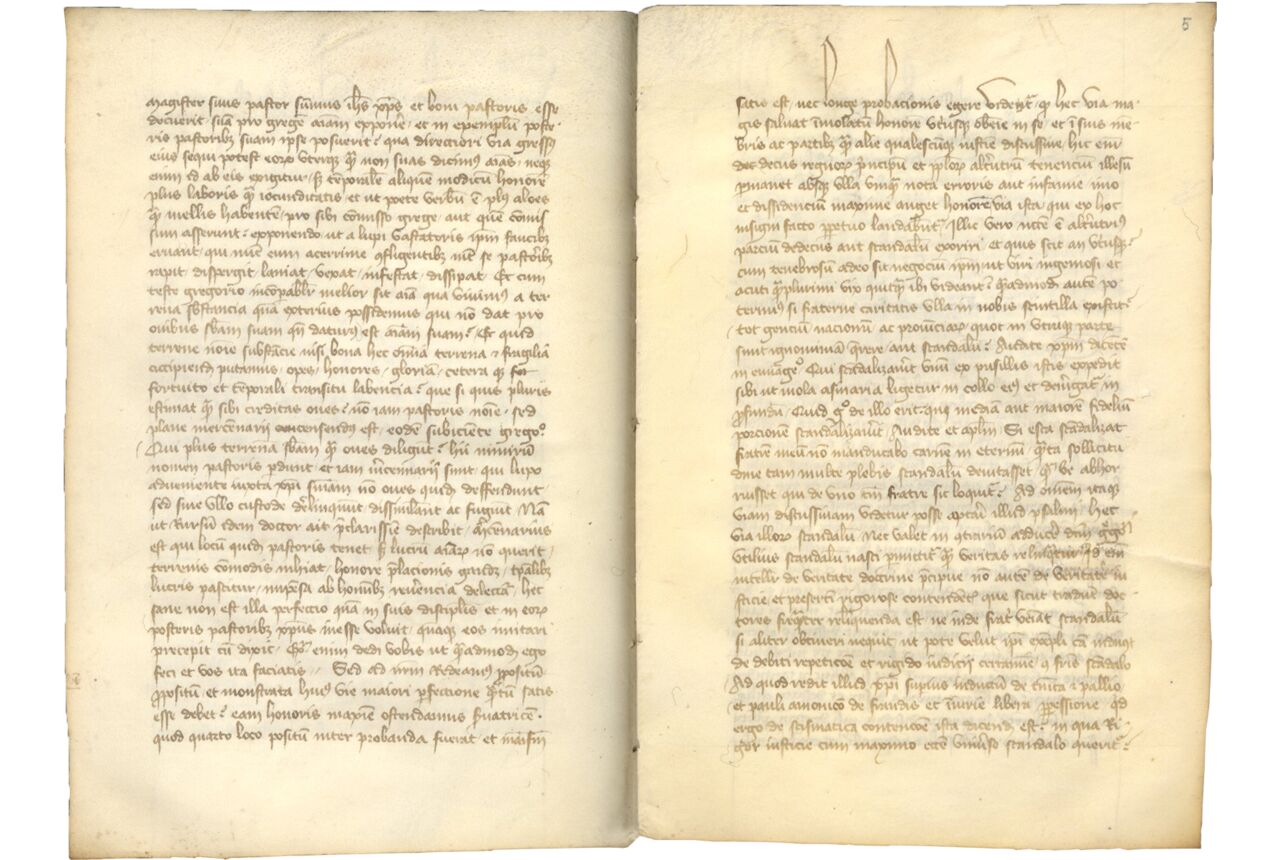 magister suus pastor sūmus ihs xps et boni pastoris esse
docuerit suā pro grege aīam exponere et in exemplum poste
ris pastoribꝫ suam ipse posuerit qua directiori via gressus
eius sequi potest eoꝝ uterqꝫ quam non suas dicimus aīas neqꝫ
enim id ab eis exigitur sed temporalē aliquem modicū honorē
plus laboris quam iocunditatis et ut poete verbū ē plus aloes
quam mellis habentem pro sibi comisso grege aut quē comis
sum asserunt exponendo ut a lupi vastatoris ipm faucibꝫ
eruant qui nunc eum acerrime confligentibꝫ inter se pastoribꝫ
rapit dispergit laniat vexat infestat dissipat Et cum
teste gregorio incōpabiliter melior sit aīa qua vivimus a ter
rena substancia quā exterius possidemus qui nō dat pro
ovibus sbām suam quando daturus est aīam suam Et quid
terrene noīe substācie nisi bona hec omīa terrena et fragilia
accipiend putamus opes honores gloriā cetera que
fortuito et temporali transitu labencia que si quis pluris
estimat quam sibi creditas oves nō iam pastoris noīe sed
plane mercennarii concensendus est eodē subiciente gregoº
Qui plus terrenā sbām quam oves diligit hii nimirū
nomen pastoris pdunt et iam mercennarii sunt qui lupo
adveniente iuxta xpi sniam nō oves quidē deffendunt
sed sine ullo custode derelinquunt dissimilant ac fugiunt Nā
ut rursū idem doctor ait preclarissime describit mercenarius
est qui locū quidē pastoris tenet sed lucrū aīaꝝ nō querit
terrenis comodis inhiat honore prelacionis gaudet tpalibꝫ
lucris pascitur impensa ab hominibꝫ reverencia delectatur hec
sane non est illa perfeccio quā in suis discipulis et in eoꝝ
posteris pastoribꝫ xpus inesse voluit quāqꝫ eos imitari
precepit cū dixit Exº enim dedi vobis ut quēadmodū ego
feci et vos ita faciatis Sed ad nrm redeamus ppositū
ppositū et monstrata huius vie maiori perfectione quātū satis
esse debet eam honoris maxime ostendamus servatricē
quod quarto loco positū inter probanda fuerat et
satis est nec longe probacionis egere videntur quod hec via ma
gis salvat imolatū honorē utriusqꝫ obeīe in se et ī suis mē
bris ac partibꝫ quam alie qualescūqꝫ iusticie discussive hic eni
decus regnoꝝ principum et populoꝝ alterutrum tenencium illesū
permanet absqꝫ ulla umquam nota erroris aut infamie imo
et dissidencium maxime auget honorē via ista qui ex hoc
insigni facto perpetuo laudabuntur Illic vero necesse ē alterutrius
parcium dedecus aut scandalū exoriri et quis scit an utriusqꝫ
cum tenebrosum adeo sit negociū ipm ut viri ingeniosi et
acuti quāplurimi vix quicquam ibi videant Quēadmodū autē po
terimus si fraterne caritatis ulla in nobis scintilla existit
tot gencium nacionū ac provinciaꝝ quot in utraqꝫ parte
sunt ignominiā querere aut scandalū Audite xpm dicētē
in evangº Qui scādalizaverit unū ex pusillis istis expedit
sibi ut mola asinaria ligetur in collo eius et demgatur in
profundū Quid gº de illo erit qui mediam aut maiorē fidelium
porcionem scandalizaverit Audite et aplm Si esca scādalizat
fratrē meū non manducabo carnem in eternū quāta sollicitu
dine tam multe plebis scandalū devitasset quam ve abhor
ruisset qui de uno tm̄ fratre sic loquitur Ad omnem itaqꝫ
viam discussivam videtur posse aptari illud psalmi hec
via illoꝝ scandalū Nec valet in contrariū adduci
utilius scandalū nasci pmittitur quam veritas relinquitur id enī
intelligitur de veritate doctrine precipue nō autē de veritate iu
sticie et presertim rigorose contendētis que sicut tradunt doc
tores frequenter relinquenda est ne inde fratri veniat scandalū
si aliter obtineri nequit ut pote velut ipi exempli cā
de debiti repeticōe et rigido iudicii certamine fris scādalo
Ad quod redit illud xpi supius inductū de tunica et pallio
et pauli amonicō de fraudis et iniurie libera perpessione quid
ergo de scismatica contencōe ista dicendū est in qua ri
gor iusticie cum maximo ecce universe scandalo queritur
5